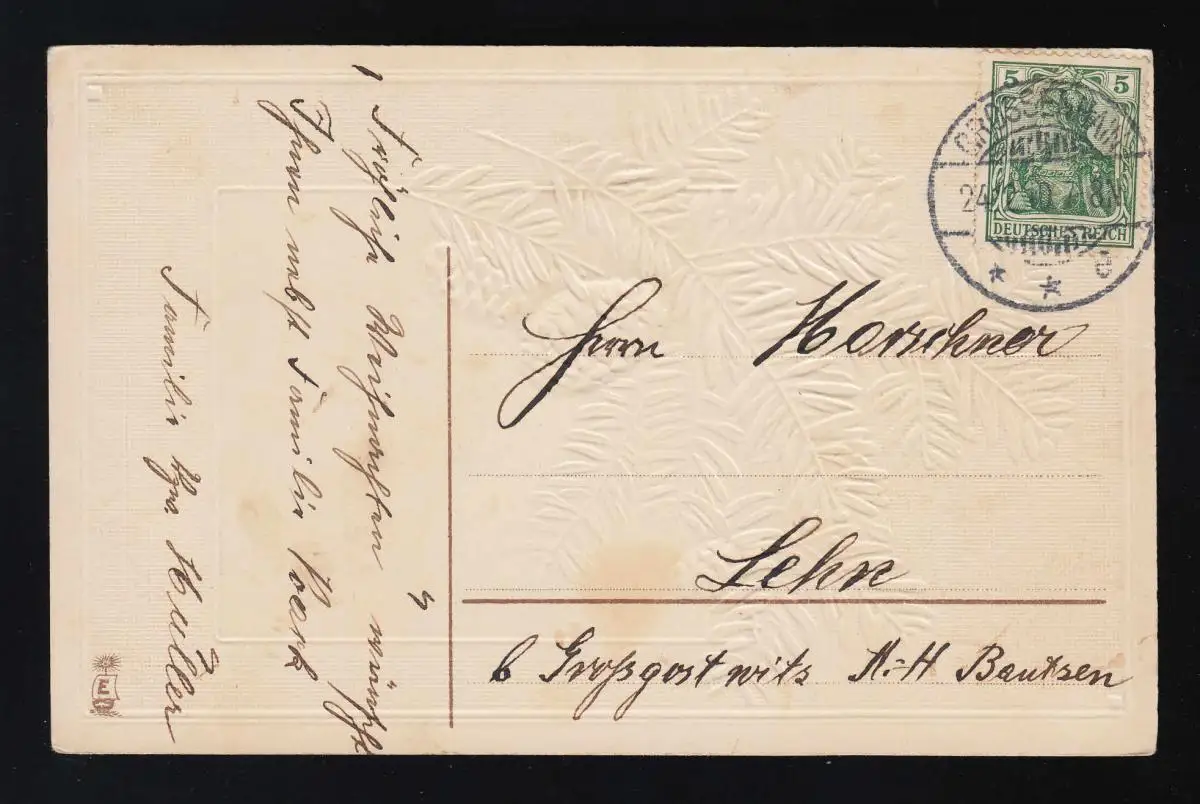 Fröhliche Weihnachten wünscht
Ihnen nebst Familie
Familie Müller
5 5
DEUTSCHES REICH
GROSSENHAIN
24.12.
Herrn Horschner
Lehn
b Großpostwitz A.-H Bautzen
E